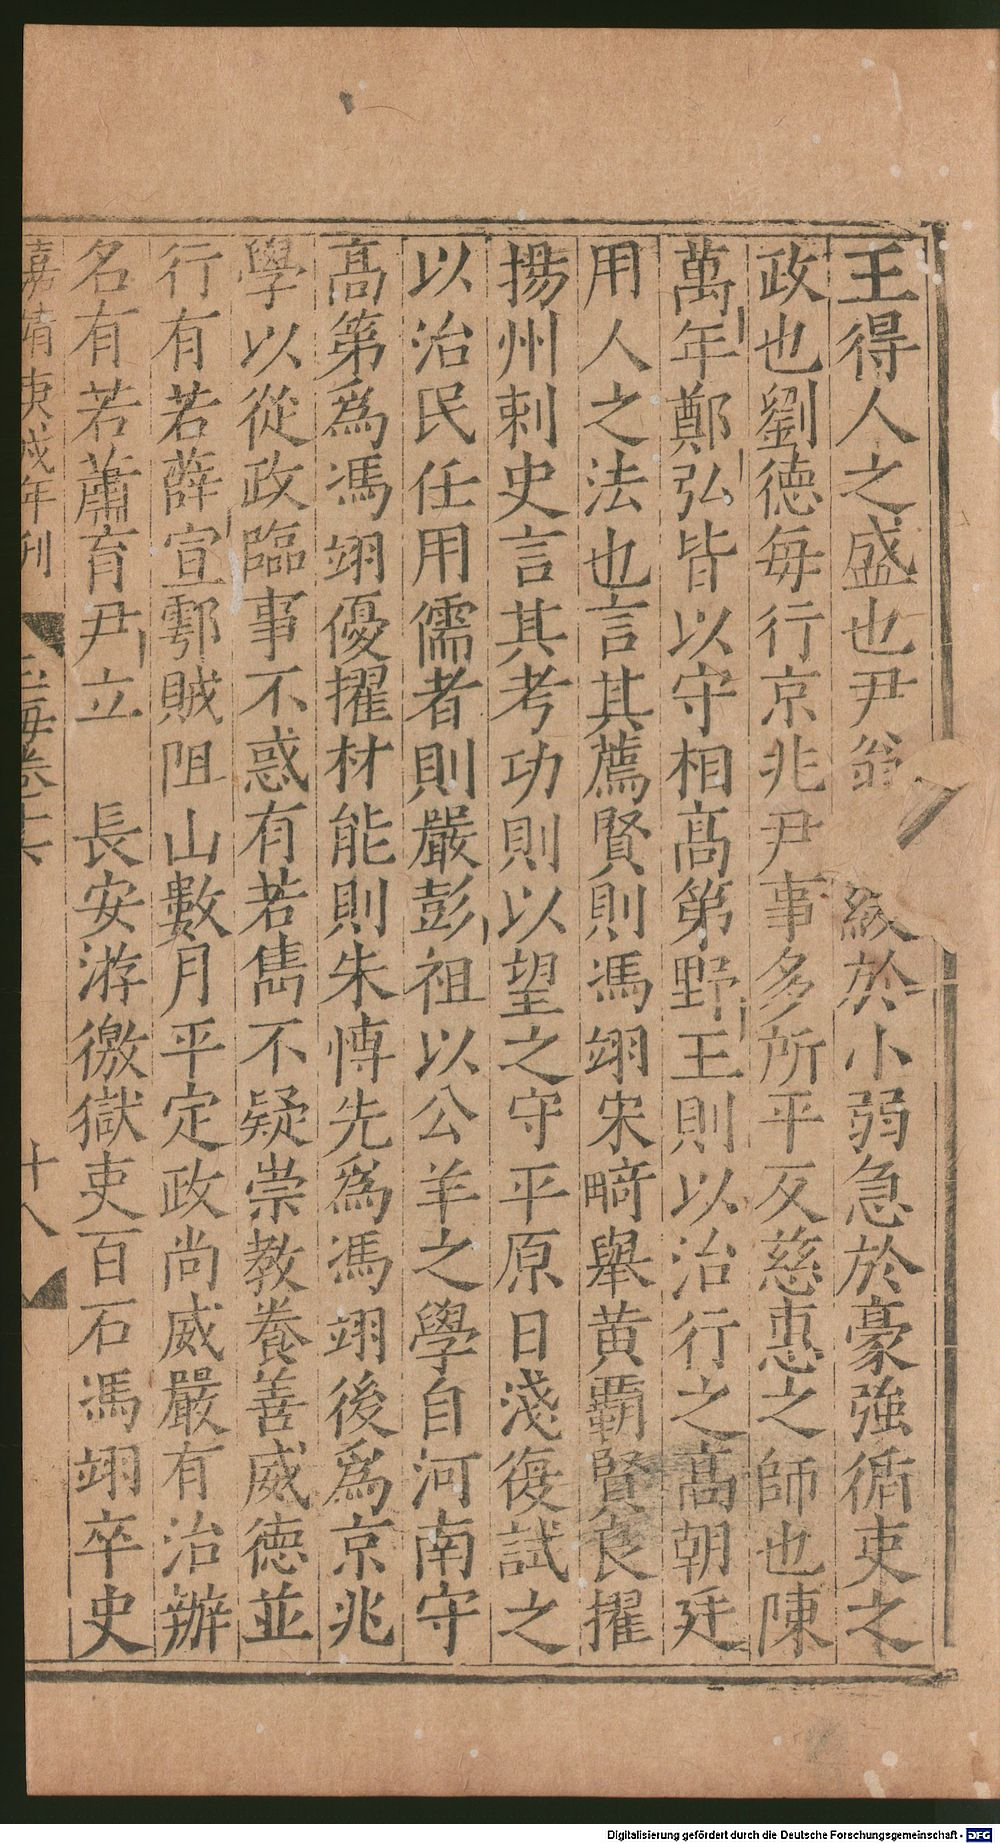 王得人之盛也尹翁緩於小弱急於豪強循吏之
政也劉德每行京兆尹事多所平反慈惠之師也陳
萬年鄭弘皆以守相高第野王則以治行之高朝廷
用人之法也言其薦賢則馮翊宋畸舉黄霸賢良擢
揚州刺史言其考功則以望之守平原日淺復試之
以治民任用儒者則嚴彭祖以公羊之學自河南守
高第爲馮翊優擢材能則朱愽先爲馮翊後爲京兆
學以從政臨事不惑有若雋不疑崇教養善威德並
行有若薛宣鄠賊阻山數月平定政尚威嚴有治辦
名有若蕭育尹立 長安游徼獄吏百石馮翊卒史
嘉靖庚戌年刊
玉海卷
十八
Digitalisierung gefördert durch die Deutsche Forschungsgemeinschaft - DFG